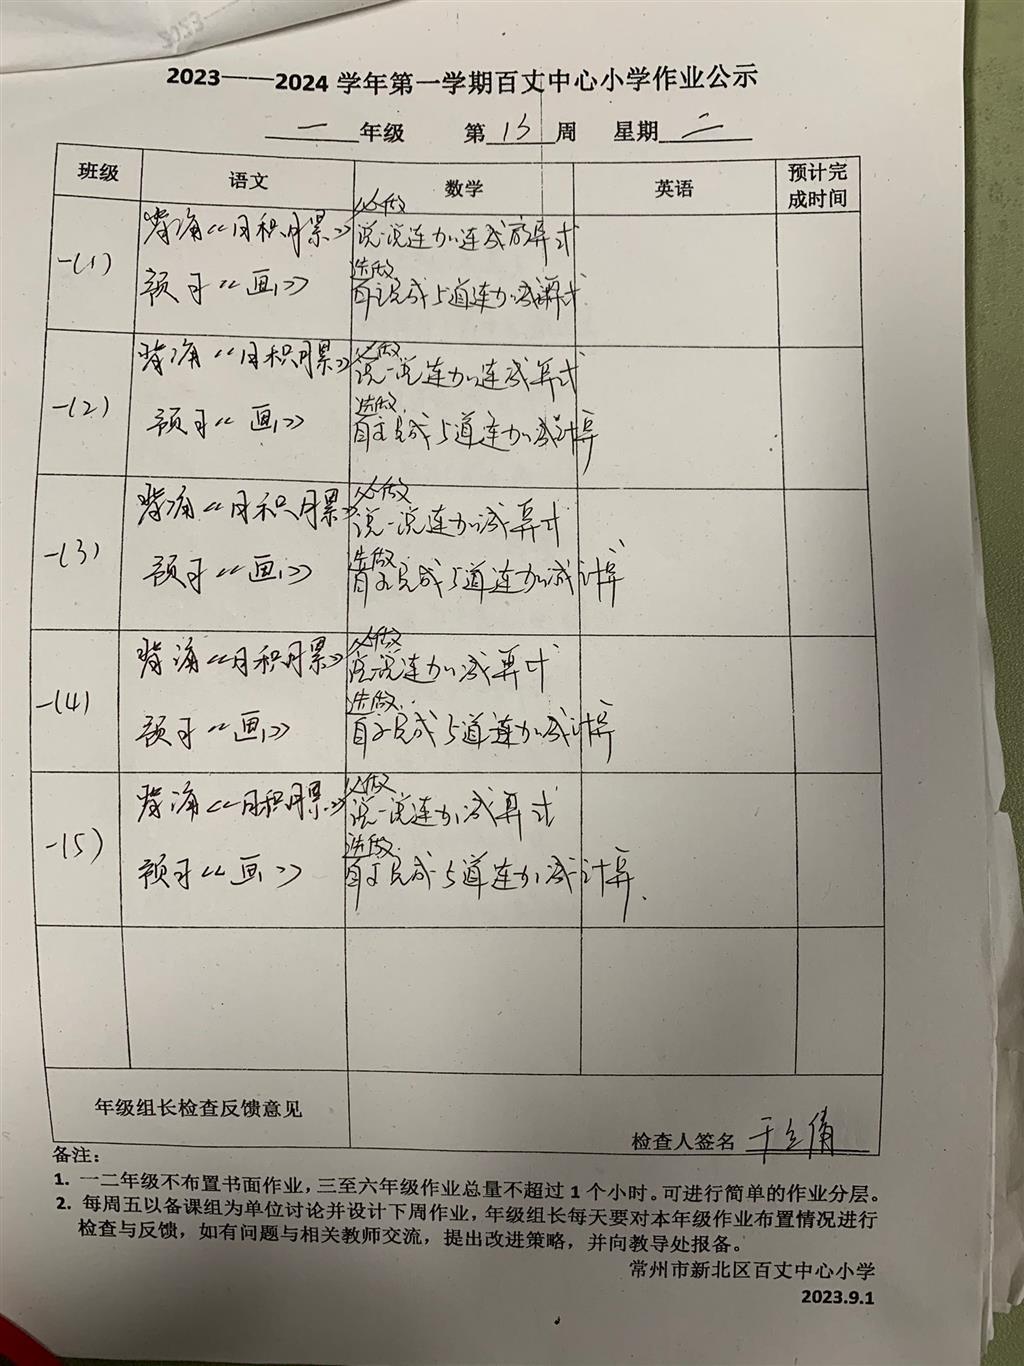 2023——2024 学年第一学期百丈中心小学作业公示
一 年级 第 13 周 星期 二
班级 语文 数学 英语 预计完成时间
一(1)
背诵《日积月累》
预习《画》
必做
说一说连加连减算式
选做
自主完成5道连加减算式
一(2)
背诵《日积月累》
预习《画》
必做
说一说连加连减算式
选做
自主完成5道连加减计算
一(3)
背诵《日积月累》
预习《画》
必做
说一说连加减算式
选做
自主完成5道连加减计算
一(4)
背诵《日积月累》
预习《画》
必做
说一说连加减算式
选做
自主完成5道连加减计算
一(5)
背诵《日积月累》
预习《画》
必做
说一说连加减算式
选做
自主完成5道连加减计算.
年级组长检查反馈意见
检查人签名
备注：
1. 一二年级不布置书面作业，三至六年级作业总量不超过 1 个小时。可进行简单的作业分层。
2. 每周五以备课组为单位讨论并设计下周作业，年级组长每天要对本年级作业布置情况进行
检查与反馈，如有问题与相关教师交流，提出改进策略，并向教导处报备。
常州市新北区百丈中心小学
2023.9.1